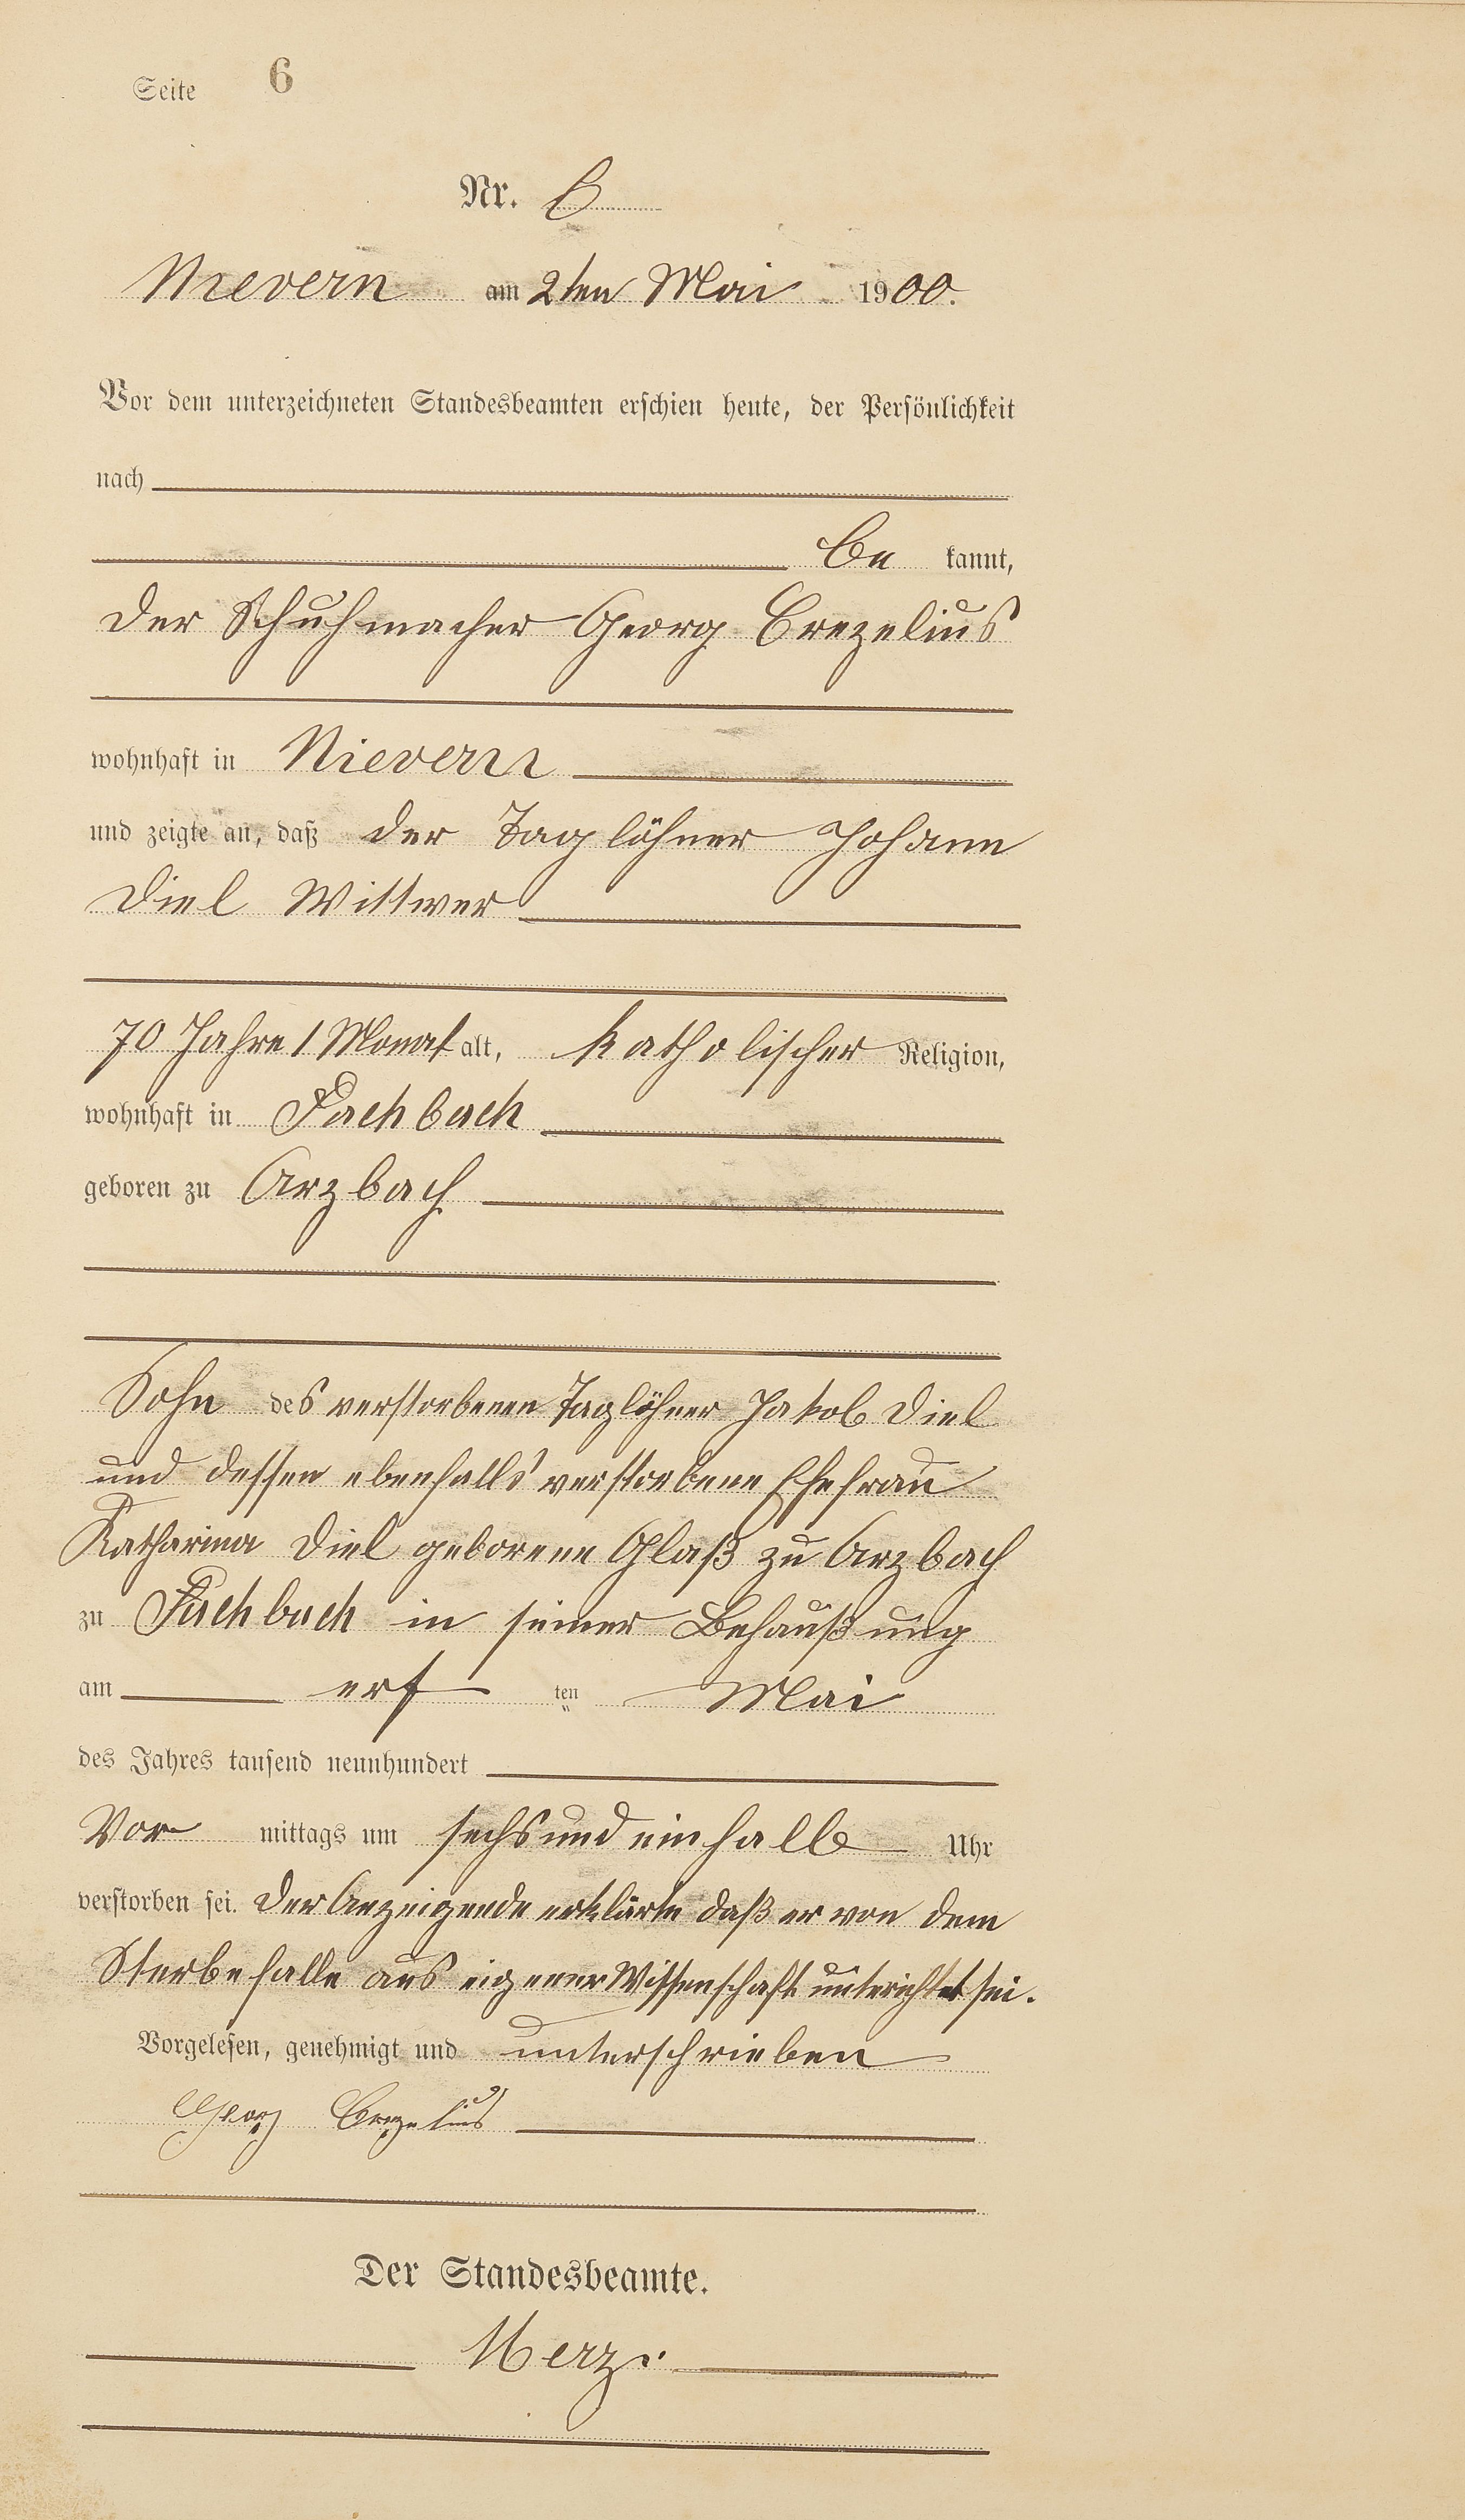 Seite 6
Nr. 6
Nievern am 2ten Mai 1900.
Vor dem unterzeichneten Standesbeamten erschien heute, der Persönlichkeit
nach
be kannt,
der Schuhmacher Georg Crezelius
wohnhaft in Nievern
und zeigte an, daß der Taglöhner Johann
Diel Wittwer
70 Jahre 1 Monat alt, katholischer Religion,
wohnhaft in Fachbach
geboren zu Arzbach
Sohn des verstorbenen Taglöhner Jakob Diel
und dessen ebenfalls verstorbene Ehefrau
Katharina Diel geborene Glaß zu Arzbach
zu Fachbach in seiner Behaußung
am ersten Mai
des Jahres tausend neunhundert
Vor mittags um sechs und ein halb Uhr
verstorben sei. Der Anzeigende erklärte daß er von dem
Sterbefalle aus eigener Wissenschaft unterichtet sei.
Vorgelesen, genehmigt und unterschrieben
Georg Crezelius
Der Standesbeamte.
Merz.